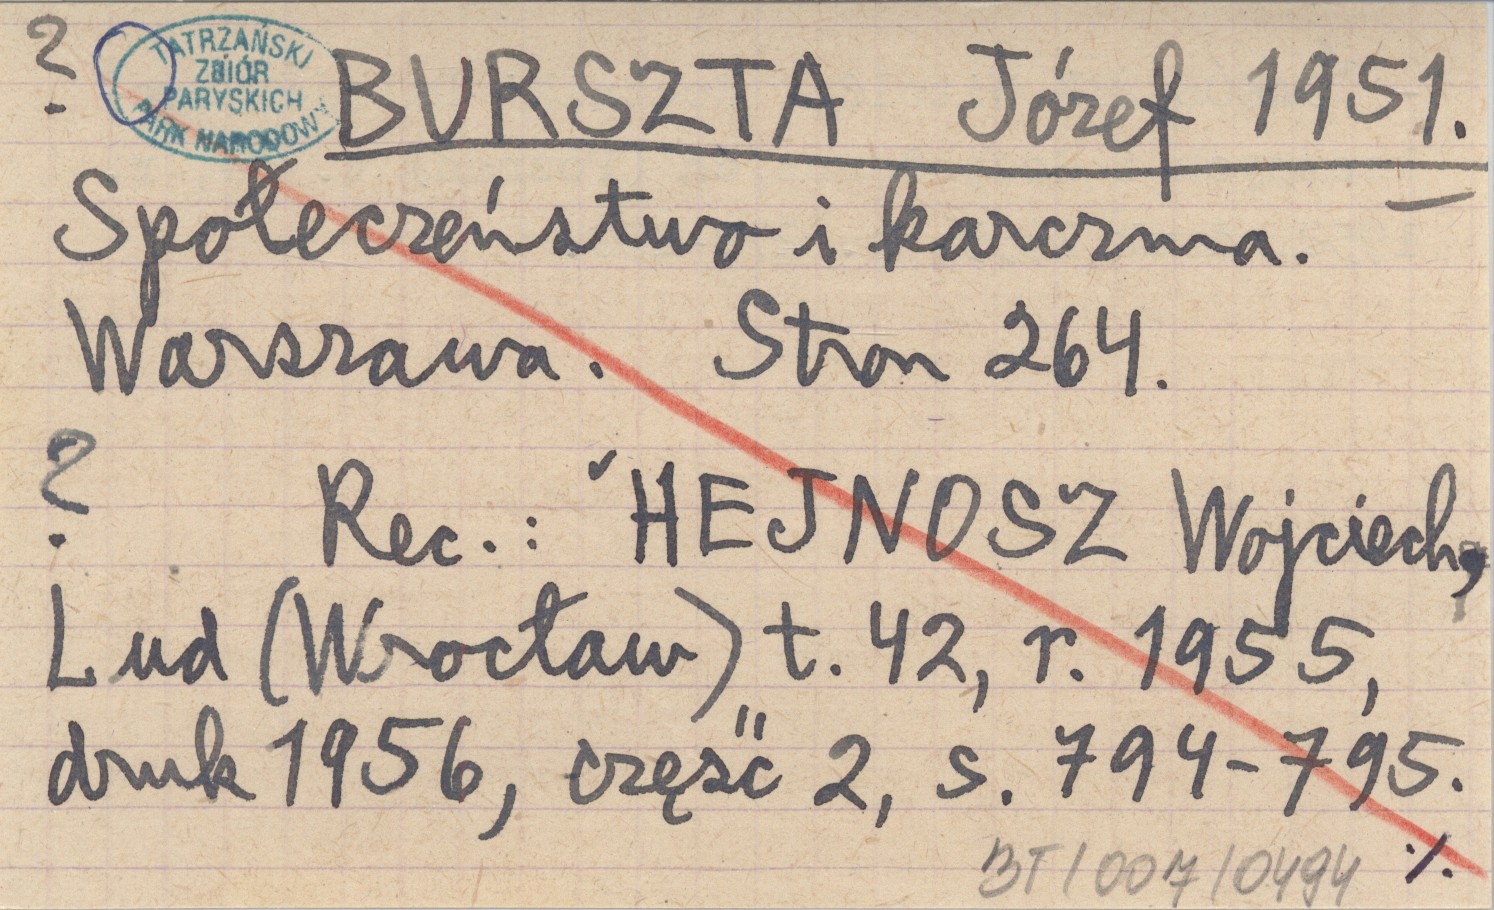 ?
TATRZAŃSKI
ZBIÓR
PARYSKICH
PARK NARODOWY
BURSZTA Józef 1951.
Społeczeństwo i karczma.
Warszawa. Stron 264.
?
Rec.: HEJNOSZ Wojciech,
Lud (Wrocław) t. 42, r. 1955,
druk 1956, część 2, s. 794-795.
·/.
BT/007/0494